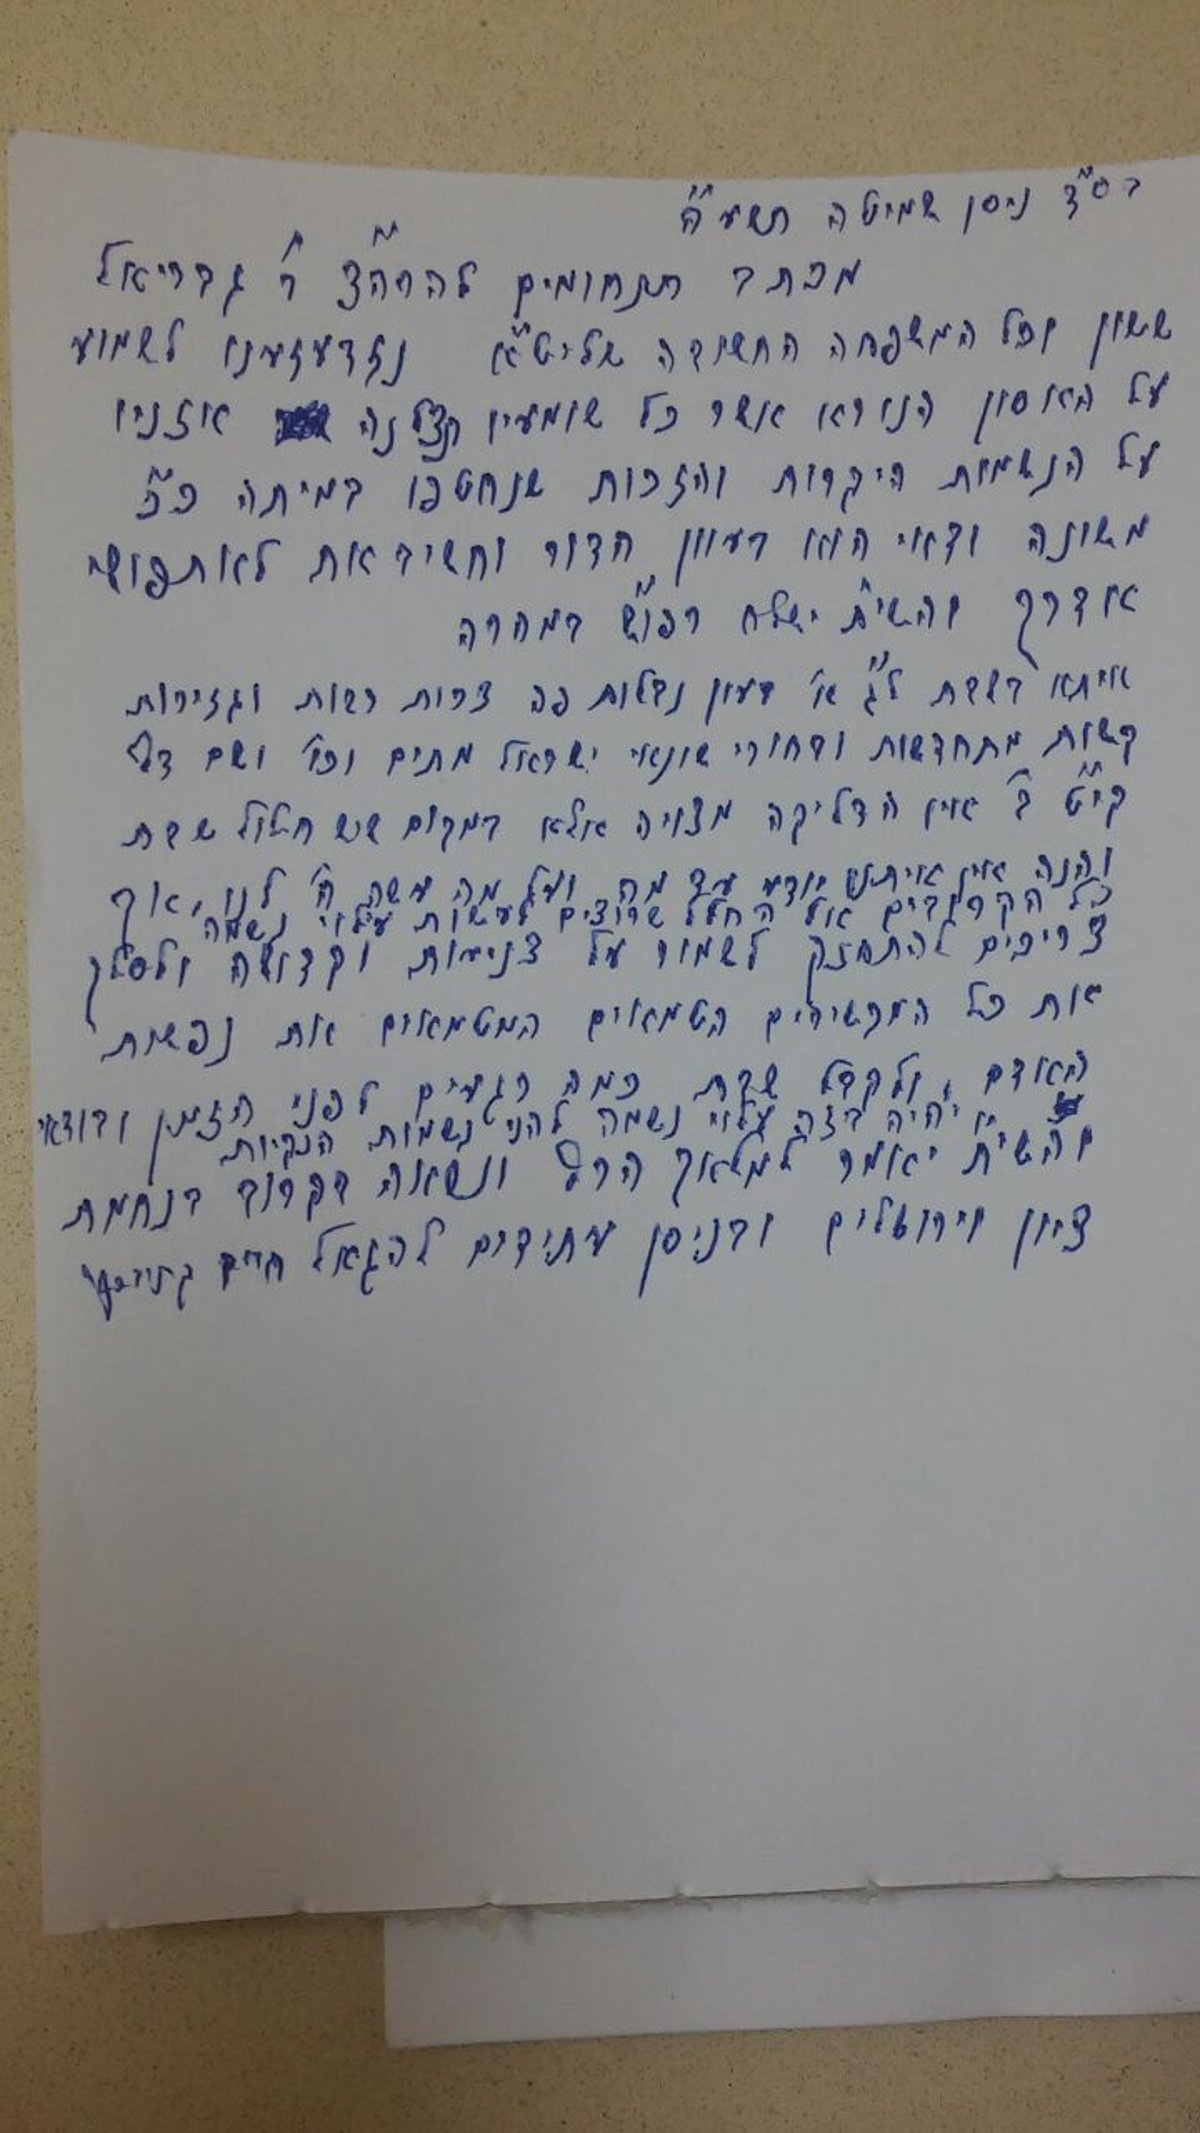 בס"ד ניסן שמיטה תשע"ה
מכתב תנחומים להרה"צ ר' גבריאל
ששון וכל המשפחה החשובה שליט"א נזדעזענו לשמוע
על האסון הנורא אשר כל שומעיו תצלנה אזניו
על הנשמות היקרות והזכות שנחטפו במיתה כ"כ
משונה ודאי הוא בעוון הדור וחשיבא את לאתפושי
אדרך והשי"ת ישלח רפו"ש במהרה
איתא בשבת ל"ג א' בעון נבלות פה צרות רבות וגזירות
קשות מתחדשות ובחורי שונאי ישראל מתים וכו' ושם דף
קי"ט ב' אין הדליקה מצויה אלא במקום שיש חילול שבת
והנה אין איתנו יודע עד מה ועל מה עשה ה' לנו, אך
כל הקרובים אל החלל שרוצים לעשות עילוי נשמה
צריכים להתחזק לשמור על צניעות וקדושה ולסלק
את כל המכשירים הטמאים המטמאים את נפשות
האדם, ולקבל שבת כמה רגעים לפני הזמן ובודאי
יהיה בזה עלוי נשמה להני נשמות הנקיות
והשי"ת יאמר למלאך הרף ונשאה בקרוב בנחמת
ציון וירושלים ובניסן עתידים להגאל חיים